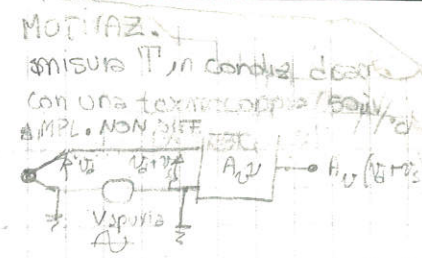 MOTIVAZ.
misura T in condiz
con una termocoppia (50μV/°C
AMPL. NON DIFF
vd vd+vs Av Av(vd+vs
Vspuria